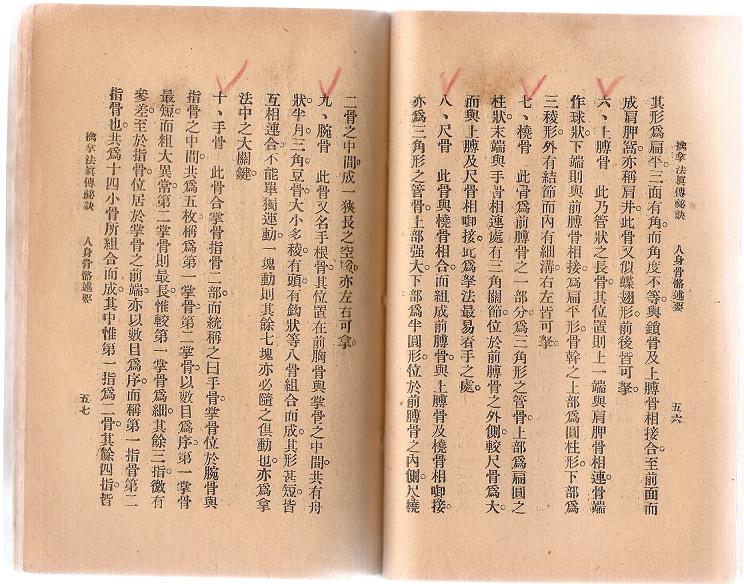 擒拿法眞傳秘訣　人身骨骼述要　五六
其形爲扁平。三面有角。而角度不等。與鎖骨及上膊骨相接合。至前面而
成肩胛窩。亦稱肩井。此骨又似蝶翅形。前後皆可拏。
六、上膊骨　此乃管狀之長骨。其位置則上一端與肩胛骨相連。骨端
作球狀。下端則與前膊骨相接。爲扁平形。骨幹之上部爲圓柱形。下部爲
三稜形。外有結節。而內有細溝。左右皆可拏。
七、橈骨　此骨爲前膊骨之一部分。爲三角形之管骨。上部爲扁圓之
柱狀。末端與手骨相連處。有三角關節。位於前膊骨之外側。較尺骨爲大。
而與上膊及尺骨相啣接。此爲拏法最易着手之處。
八、尺骨　此骨與橈骨相合。而組成前膊骨。與上膊骨及橈骨相啣接。
亦爲三角形之管骨。上部强大。下部爲半圓形。位於前膊骨之內側。尺橈
二骨之中間。成一狹長之空隙。亦左右可拿。
九、腕骨　此骨又名手根骨。其位置在前胸骨與掌骨之中間。共有舟
狀半月三角豆骨大小多稜有頭有鈎狀等八骨組合而成。其形甚短。皆
互相連合。不能單獨運動。一塊動則其餘七塊亦必隨之俱動也。亦爲拿
法中之大關鍵。
十、手骨　此骨合掌骨指骨二部而統稱之曰手骨。掌骨位於腕骨與
指骨之中間。共爲五枚。稱爲第一掌骨第二掌骨。以數目爲序。第一掌骨
最短而粗大異常。第二掌骨則最長。惟較第一掌骨爲細。其餘三指微有
參差。至於指骨。位居於掌骨之前端。亦以數目爲序。而稱第一指骨第二
指骨也。共爲十四小骨所組合而成。其中惟第一指爲二骨。其餘四指皆
擒拿法眞傳秘訣　人身骨骼述要　五七